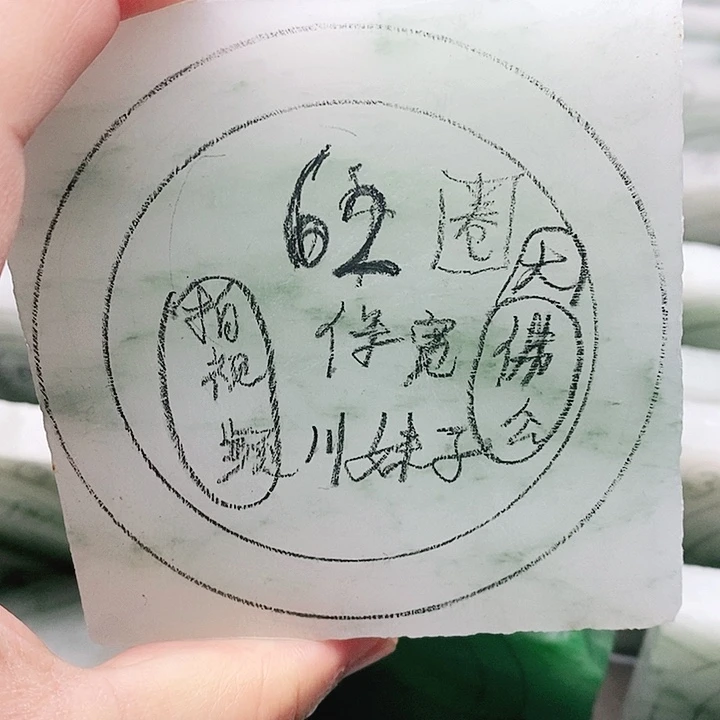 62 圈
大
保宽
佛公
川妹子
拍视频